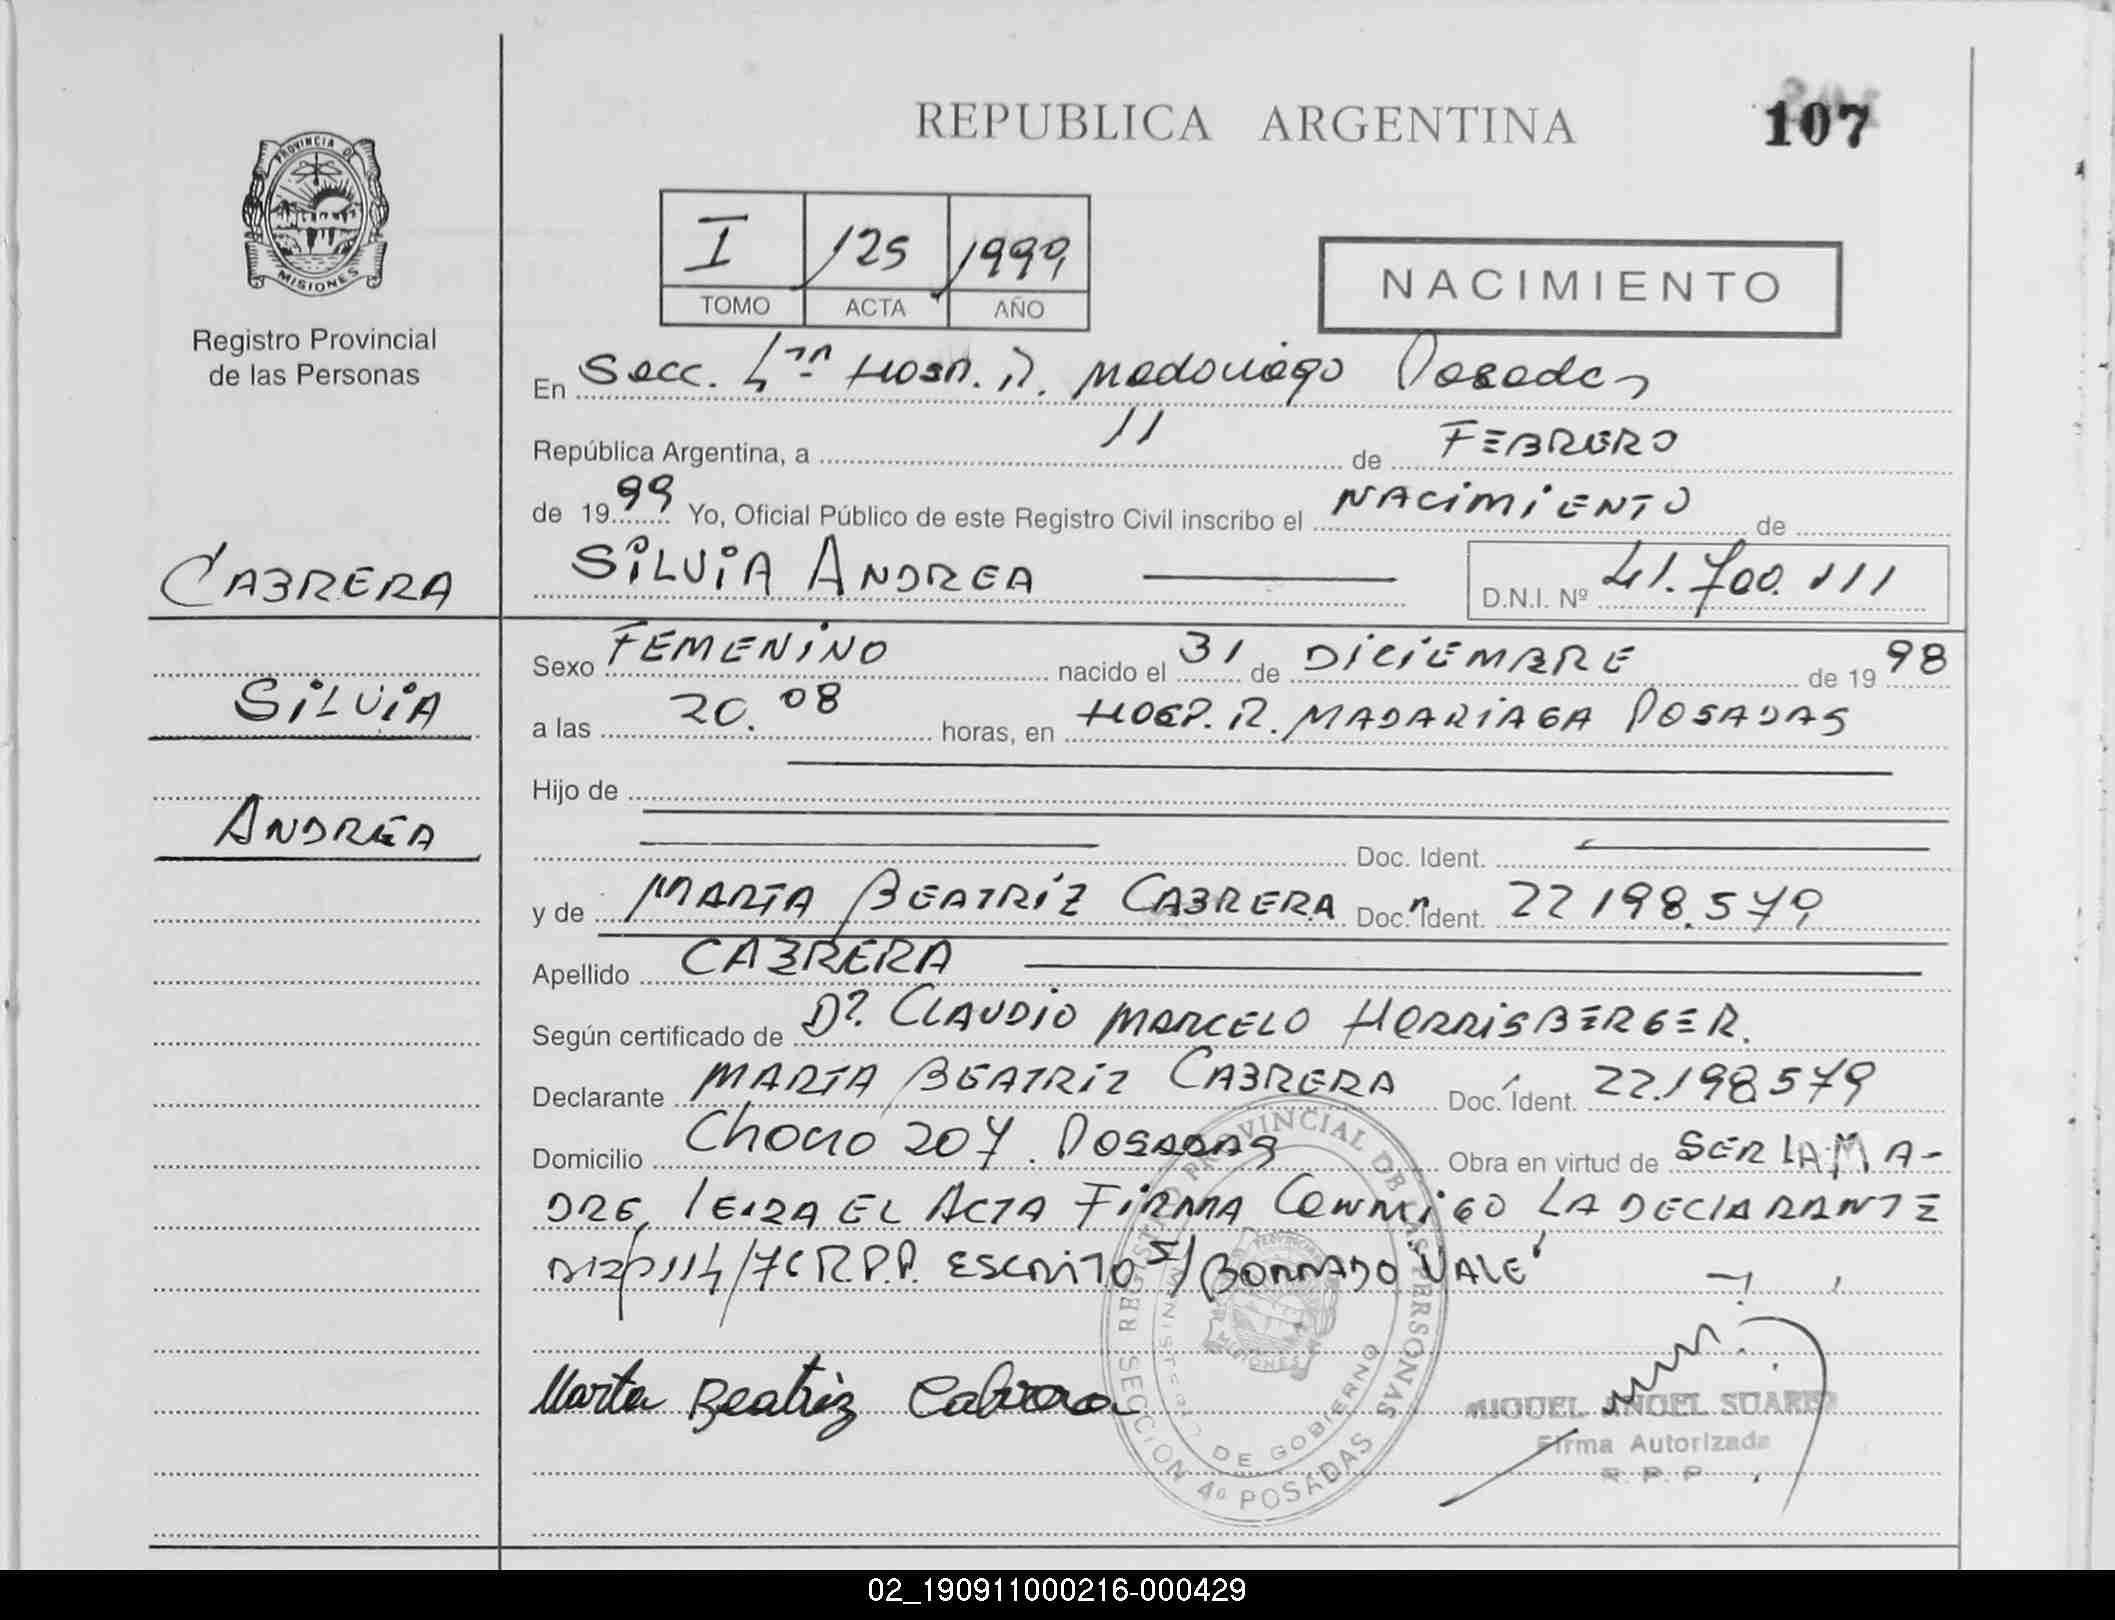 REPUBLICA ARGENTINA
107
PROVINCIA DE
MISIONES
Registro Provincial
de las Personas
I 125 1999
TOMO ACTA AÑO
NACIMIENTO
En Secc. 4ta Hosp. R. Madariaga Posadas
República Argentina, a 11 de FEBRERO
de 1999 Yo, Oficial Público de este Registro Civil inscribo el NACIMIENTO de
SILVIA ANDREA D.N.I. Nº 41.700.111
CABRERA
SILVIA
ANDREA
Sexo FEMENINO nacido el 31 de DICIEMBRE de 1998
a las 20.08 horas, en HOSP. R. MADARIAGA POSADAS
Hijo de
Doc. Ident.
y de MARTA BEATRIZ CABRERA Doc. Ident. 22198.579
Apellido CABRERA
Según certificado de Dr. CLAUDIO MARCELO HERRISBERGER.
Declarante MARTA BEATRIZ CABRERA Doc. Ident. 22.198579
Domicilio Choco 207. POSADAS Obra en virtud de SER LA MA-
DRE, LEIDA EL ACTA FIRMA CONMIGO LA DECLARANTE
R.P.P. ESCRITO S/ BORRADO "VALE"
Marta Beatriz Cabrera
REGISTRO PROVINCIAL DE LAS PERSONAS
SECCION 4ª POSADAS
MINISTERIO DE GOBIERNO
MISIONES
MIGUEL ANGEL SUAREZ
Firma Autorizada
R. P. P.
02_190911000216-000429